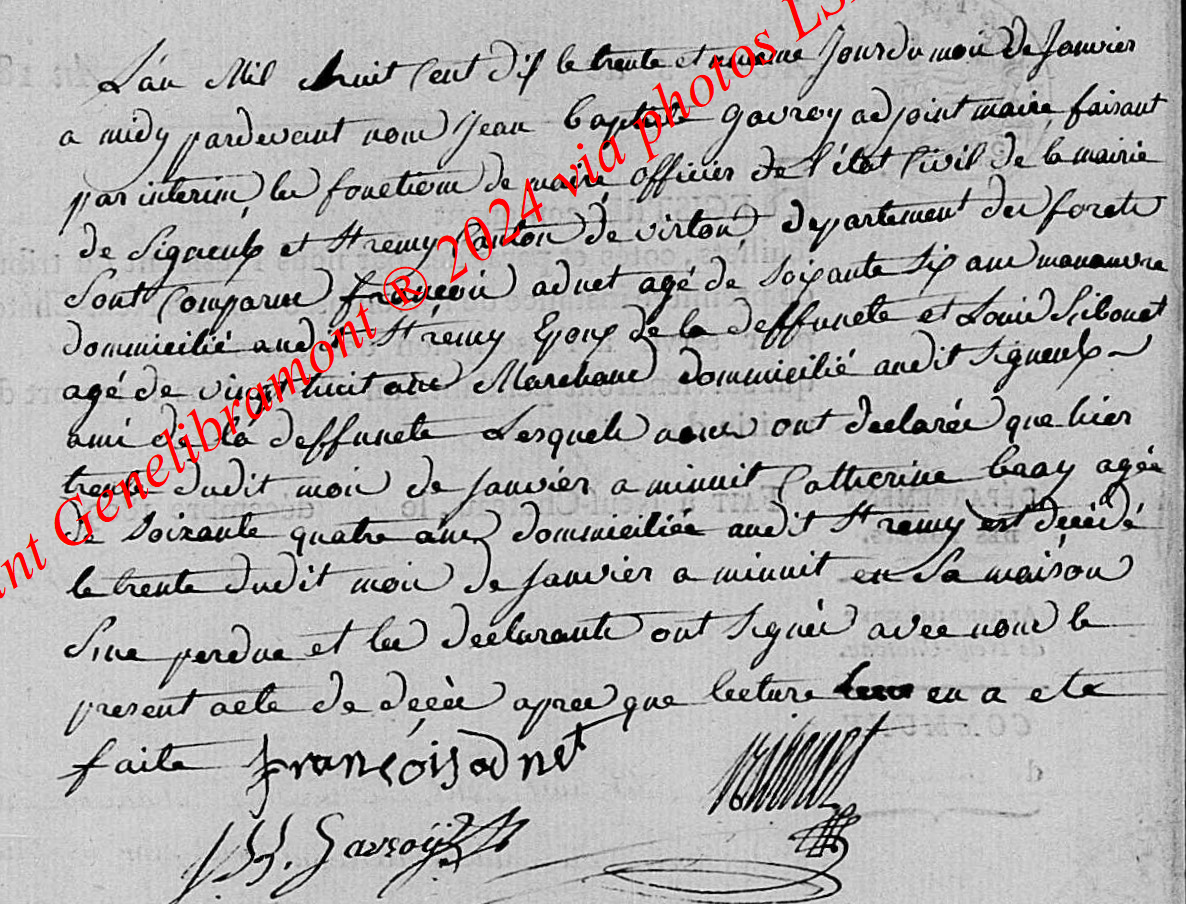 L'an Mil huit Cent dix le trente et unieme jour du mois de janvier
a midy pardevant nous Jean baptiste gavroy adjoint maire faisant
par interim les fonctions de maire officier de l'état Civil de la mairie
de Signeulx et St remy Canton de virton departement des forets
Sont Comparus françois adnet agé de Soixante Six ans manœuvre
dommicilié audit St remy Epoux de la deffuncte et Louis
agé de vingt huit ans Marchand dommicilié audit Signeulx
ami de la deffuncte Lesquels nous ont declarée que hier
trente dudit mois de janvier a minuit Catherine agée
de Soixante quatre ans dommiciliée audit St remy est décédé
le trente dudit mois de janvier a minuit en Sa maison
Sine perdue et les declarants ont Signés avec nous le
present acte de décès apres que lecture en a ete
faite françois adnet
J. B. Gavroÿ
ant Genelibramont ® 2024 via photos LS